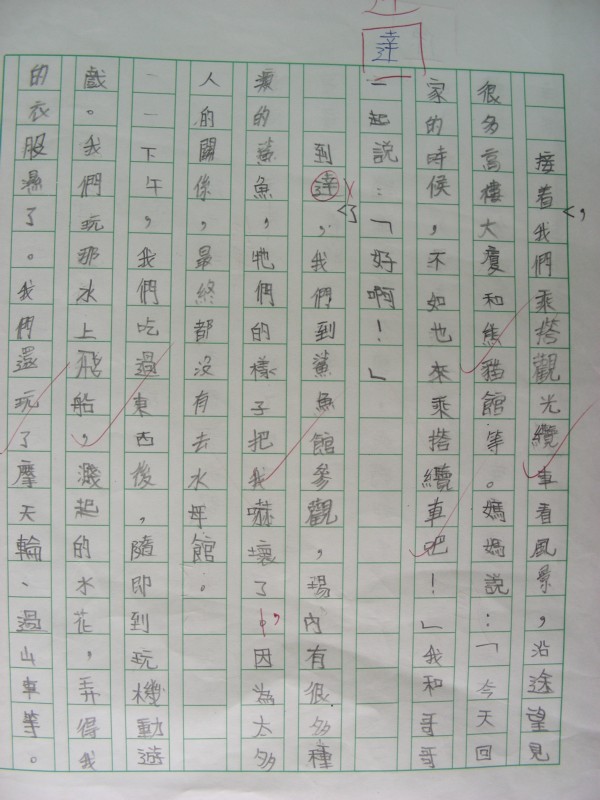 達
接着我們乘搭觀光纜車看風景，沿途望見
很多高樓大廈和熊貓館等。媽媽說：「今天回
家的時候，不如也來乘搭纜車吧！」我和哥哥
一起說：「好啊！」
到達了，我們到鯊魚館參觀，場內有很多種
的鯊魚，牠們的樣子把我嚇壞了，因為太多
人的關係，最終都沒有去水母館。
一一下午，我們吃過東西後，隨即到玩機動遊
戲。我們玩那水上飛船，濺起的水花，弄得我
的衣服濕了。我們還玩了摩天輪、過山車等。